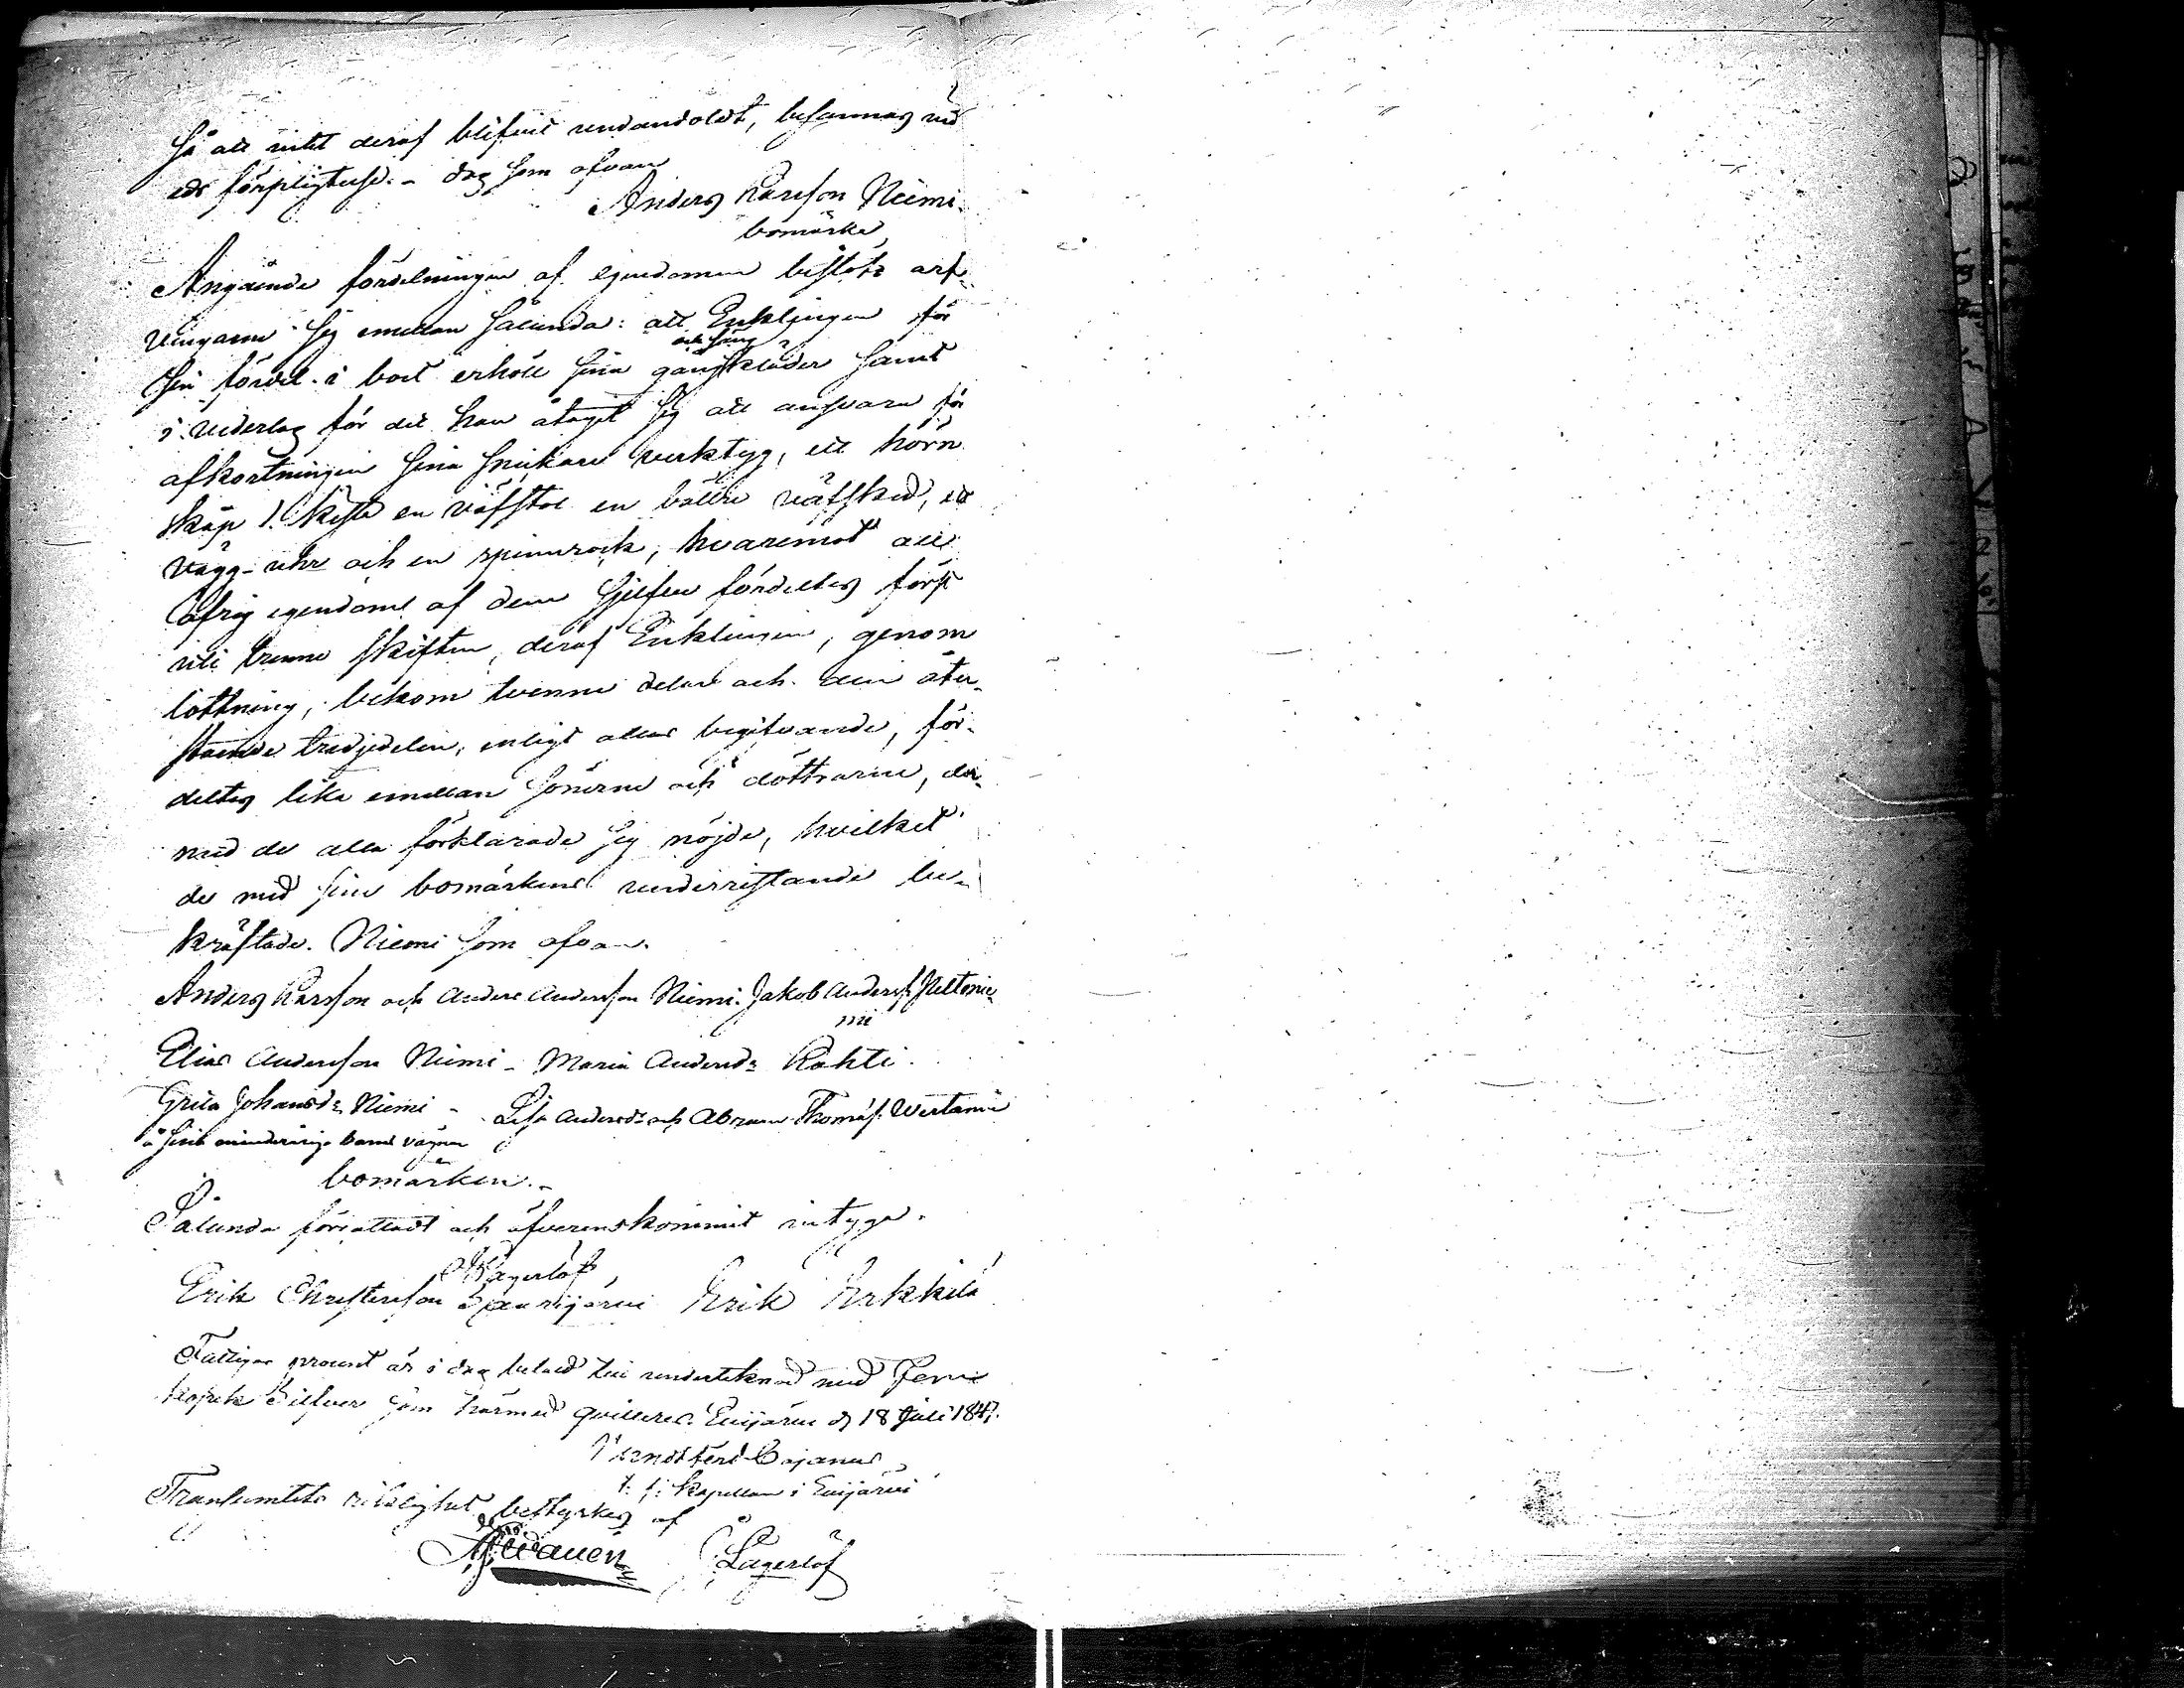 så att intet deraf blifvit undandoldt, besannas vid
eds förpligtelse. - dag som ofvan
Anders Larsson Niemi
bomärke
Angående fördelningen af egendomen beslöts arf-
vingarne sig emellan sålunda: att Enklingen för
sin fördel i boet erhöll sina gång och säng kläder samt
i vederlag för det han åtagit sig att ansvara för
afkortningen sina snickare verktyg, ett hörn
skåp 1. kista en väfstol en bättre vätsked, ett
vägg-uhr och en spinnrock, hvaremot all
öfrig egendom af dem sjelfve fördeltes först
uti trenne skiften, deraf Enklingen, genom
lottning, bekom tvenne delar och den åter-
stående tredjedelen, enligt allas begifvande, för-
deltes lika emellan sönerne och döttrarne, der-
med de alla förklarade sig nöjde, hvilket
de med sine bomärkens underristande be-
kräftade. Niemi som ofvan.
Anders Larsson och Anders Andersson Niemi. Jakob Anderss. Peltonie-
mi
Elias Andersson Niemi - Maria Andersdr Rahti.
Greta Johansdr Niemi - Lisa Andersdr och Abram Thomass.
å sina minderåriga barns vägnar
bomärken. -
Sålunda författadt och öfverenskommit intyga.
Lagerlöf
Erik Christersson Erik Erkkilä
Fattige procent är i dag betald till undertecknad med
kopek Silfver som härmed qvitteras. Evijärvi d. 18 Juli 1847.
Cajanus
t. f. kapellan i Evijärvi
Transumtets riktighet bestyrkes af
Lagerlöf